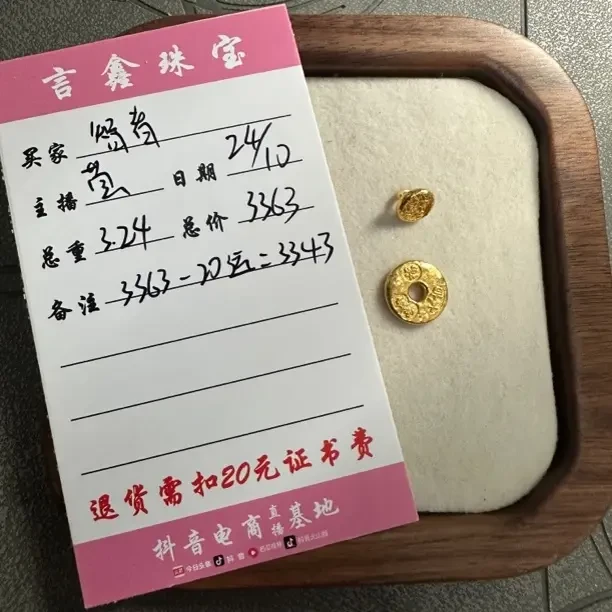 言鑫珠宝
买家
主播 日期 24/10
总重 3.24 总价 3363
备注 3363-20元=3343
退货需扣20元证书费
抖音电商直播基地
今日头条 抖音